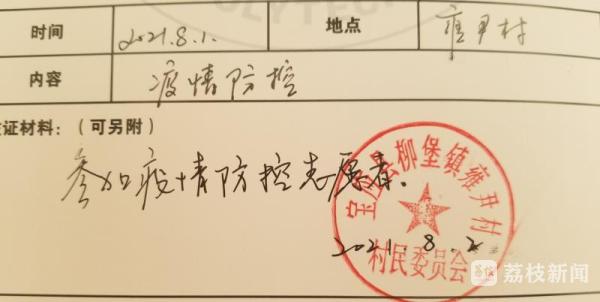 时间 2021.8.1. 地点 雍尹村
内容 疫情防控
证材料：（可另附）
参加疫情防控志愿者.
宝应县柳堡镇雍尹村
2021.8.2
村民委员会
荔枝新闻